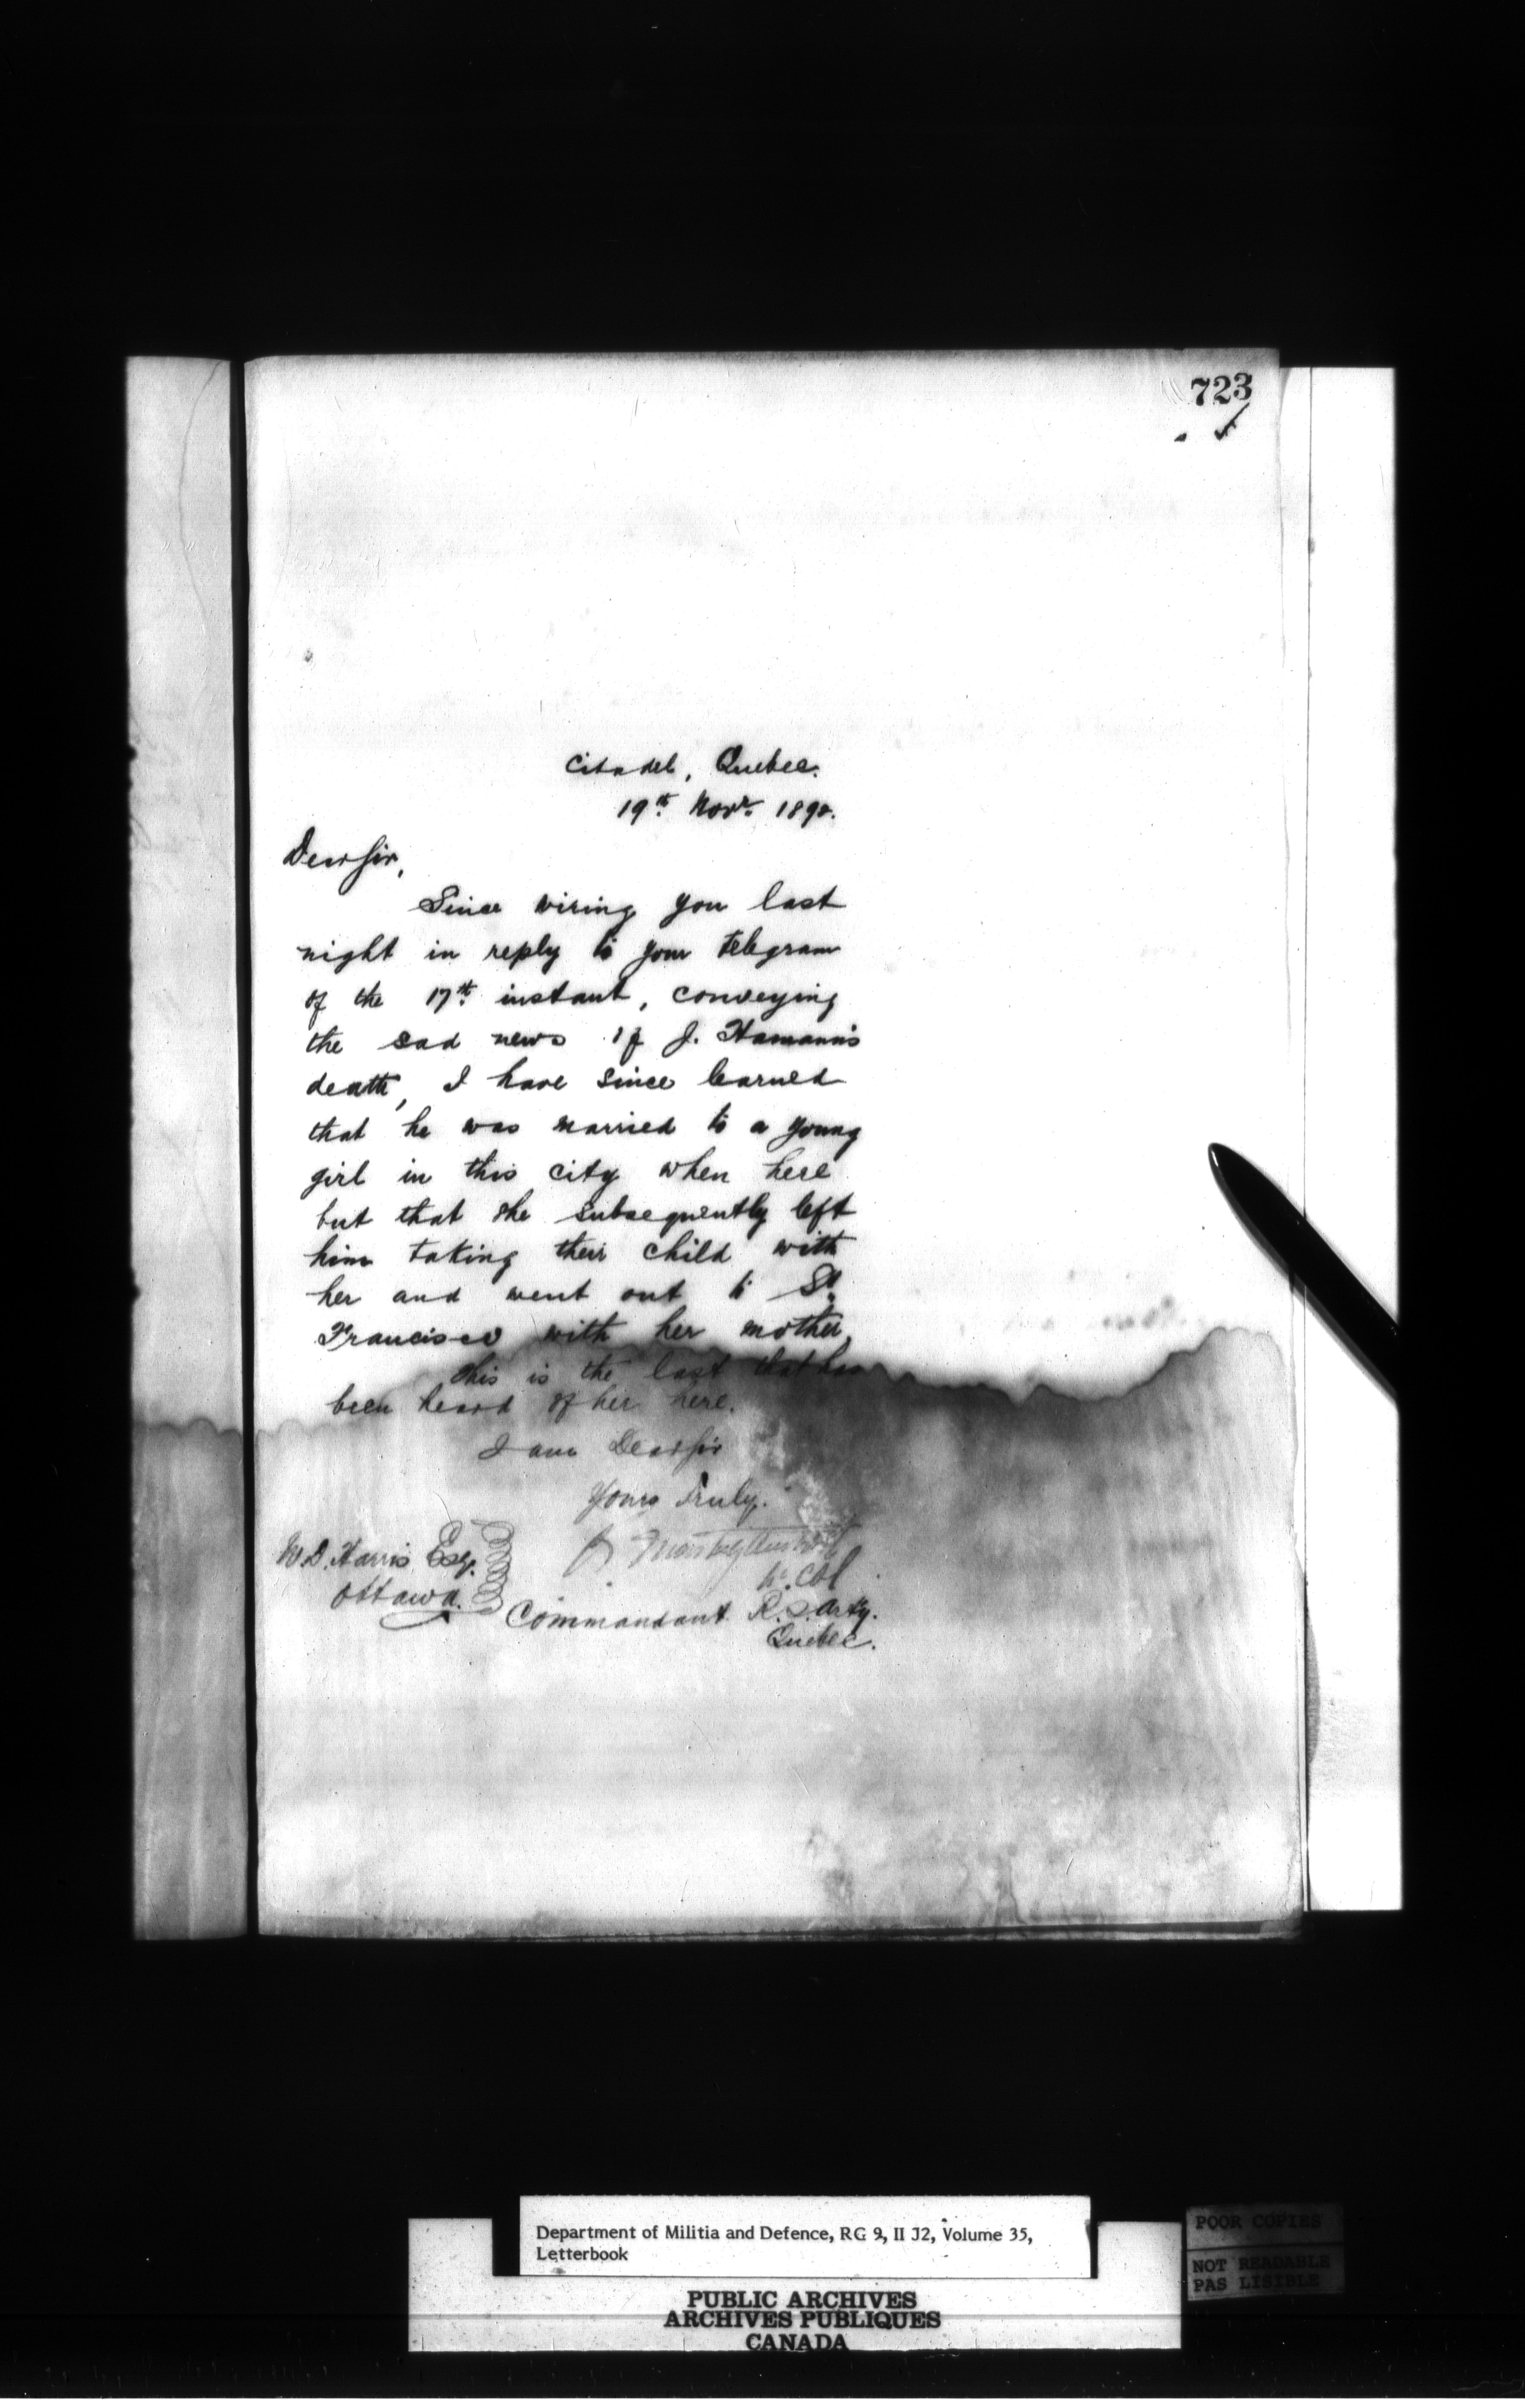 723
Citadel, Quebec.
19th Novr. 1892.
Dear Sir,
Since wiring you last
night in reply to your telegram
of the 17th instant, conveying
the sad news of J. Hamann's
death, I have since learned
that he was married to a young
girl in this city when here
but that she subsequently left
him taking their child with
her and went out to St.
Francisco with her mother.
This is the last that has
been heard of her here.
I am Dear Sir
Yours Truly.
Lt. Col
W.D. Harris Esq.
Ottawa.
Commandant R.S. Arty.
Quebec.
Department of Militia and Defence, RG 9, II J2, Volume 35,
Letterbook
PUBLIC ARCHIVES
ARCHIVES PUBLIQUES
CANADA
POOR COPIES
NOT READABLE
PAS LISIBLE